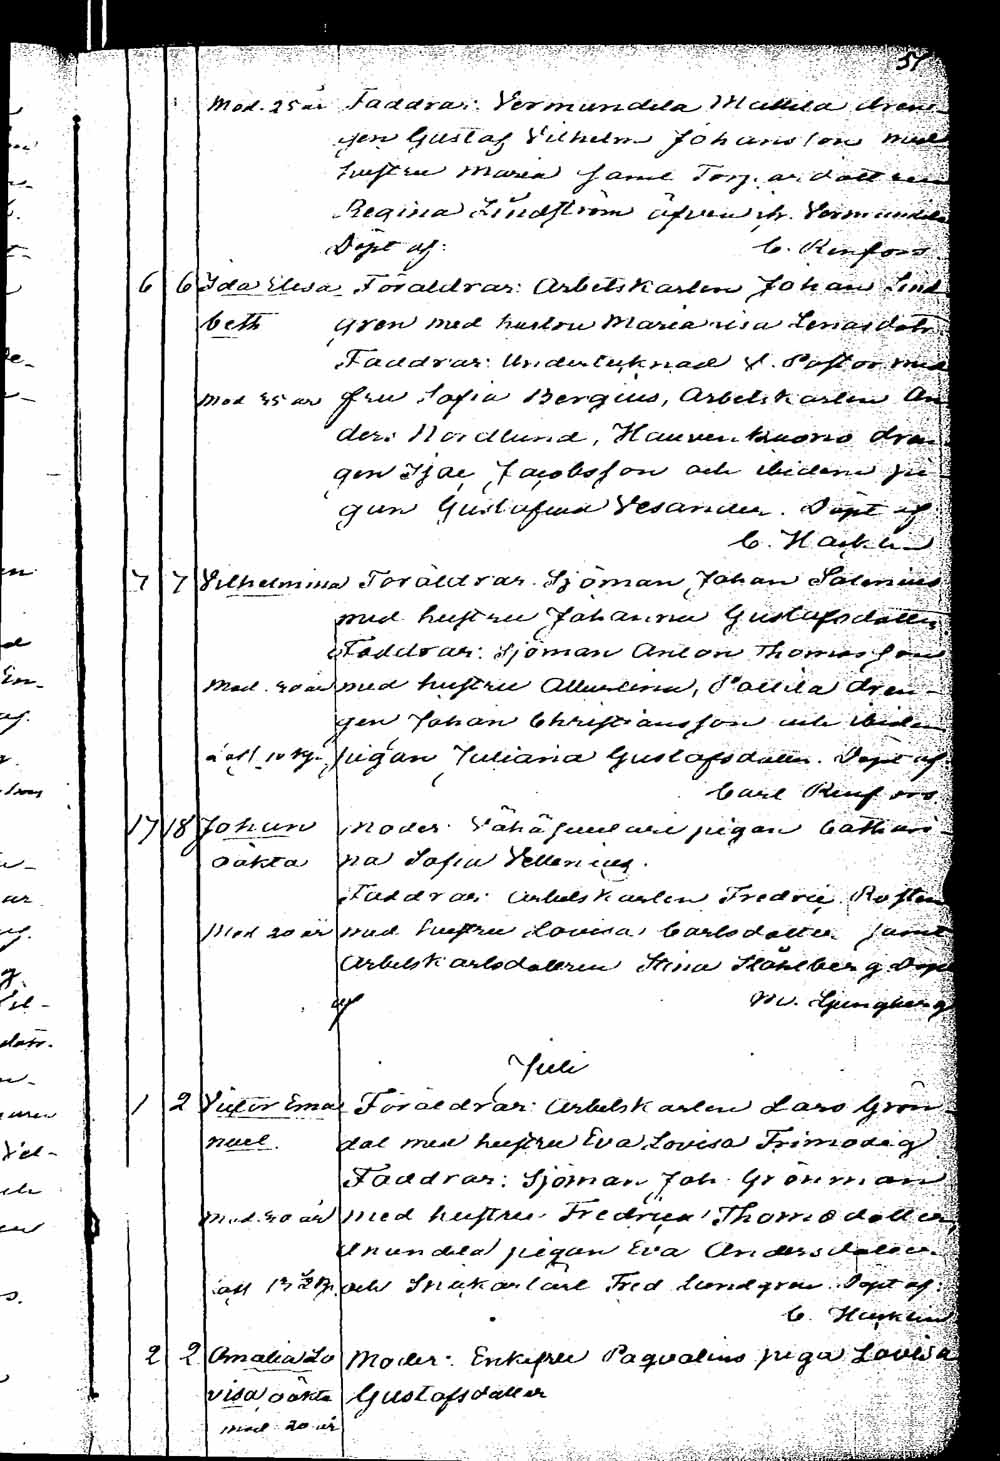 57
Mod. 25 år Faddrar: Vermundila Mattila drän-
gen Gustaf Vilhelm Johansson med
hustru Maria samt Torpardottren
Regina Lindström äfven fr. Vermundila
Döpt af: C. Renfors.
6 6 Ida Elisa Föräldrar: Arbetskarlen Johan Lind
beth gren med hustru Maria Lisa Lenasdotr.
Faddrar: Undertecknad v. Pastor med
Mod 35 år fru Sofia Bergius, Arbetskarlen An
ders Nordlund, drän-
gen Isac Jacobsson och ibidem pi
gan Gustafva Vesander. Döpt af
C. Hacklin
7 7 Vilhelmina Föräldrar. Sjöman Johan Salenius
med hustru Johanna Gustafsdotter
Faddrar: Sjöman Anton Thomasson
Mod. 30 år med hustru Albertina, Pattila drän-
gen Johan Christiansson och ibidem
pigan Juliana Gustafsdotter. Döpt af
Carl Renfors.
17 18 Johan Moder: pigan Cathari-
oäkta na Sofia
Faddrar: Arbetskarlen Fredric Rosten
Mod 20 år med hustru Lovisa Carlsdotter samt
Arbetskarlsdottren Stina Ståhlberg Döpt
af M. Ljungberg
Juli
1 2 Victor Ema Föräldrar: Arbetskarlen Lars Grön-
nuel. dal med hustru Eva Lovisa Frimodig
Faddrar: Sjöman Joh. Grönman
Mod. 30 år med hustru Fredrica Thomasdotter,
Anundila pigan Eva Andersdotter
och Fred Lundgren. Döpt af:
C. Hacklin
2 2 Amalia Lo Moder: Enkefru Paqvalins piga Lovisa
visa, oäkta Gustafsdotter
mod 20 år